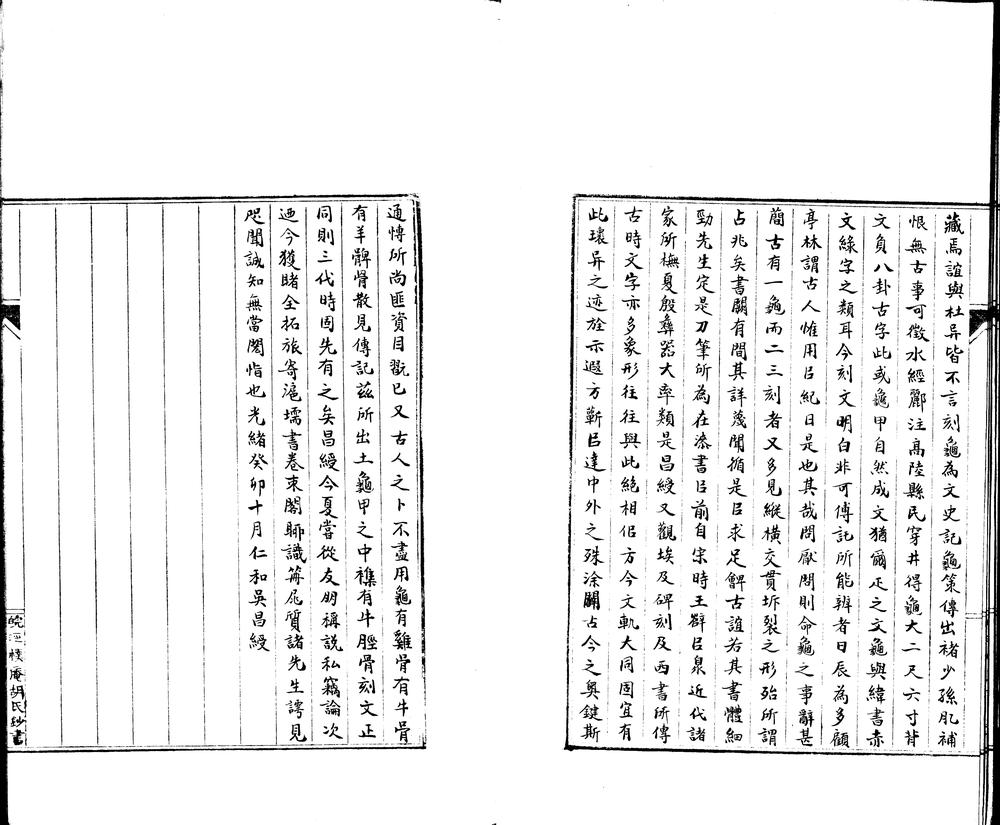 藏焉誼與杜异皆不言刻龜為文史記龜策傳出褚少孫肊補
恨無古事可徵水經酈注高陸縣民穿井得龜大二尺六寸背
文負八卦古字此或龜甲自然成文猶爾疋之文龜與緯書赤
文綠字之類耳今刻文明白非可傅記所能辨者日辰為多顧
亭林謂古人惟用㠯紀日是也其哉問厭問則命龜之事辭甚
蕳古有一龜而二三刻者又多見縱橫交貫坼裂之形殆所謂
占兆矣書闕有間其詳蔑聞循是㠯求足觧古誼若其書體細
勁先生定是刀筆所為在桼書㠯前自宋時王辥㠯泉近代諸
家所橅夏殷彝器大率類是昌綬又觀埃及碑刻及西書所傳
古時文字亦多象形往往與此絕相侣方今文軌大同固宜有
此瓌异之迹旌示遐方蘄㠯達中外之殊涂闢古今之奥鍵斯
通愽所尚匪資目翫已又古人之卜不盡用龜有雞骨有牛骨
有羊髀骨散見傳記茲所出土龜甲之中襍有牛脛骨刻文正
同則三代時固先有之矣昌綬今夏嘗從友朋稱說私竊論次
迺今獲睹全拓旅寄滬壖書卷束閣聊識簡尾質諸先生謭見
咫聞誠知無當閎恉也光緒癸卯十月仁和吳昌綬
皖涇樸庵胡氏鈔書